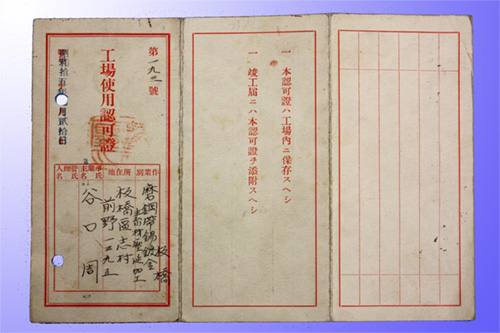 一 本認可證ハ工場內ニ保存スヘシ
一 竣工屆ニハ本認可證ヲ添附スヘシ
第一九二號
工場使用認可證
拾五年 月貳拾日
作業別
板橋
磨鋼帶錫鍍金
加工
所在地
板橋區志村
前野一二九五
事業主氏名
谷口 周
管理人氏名